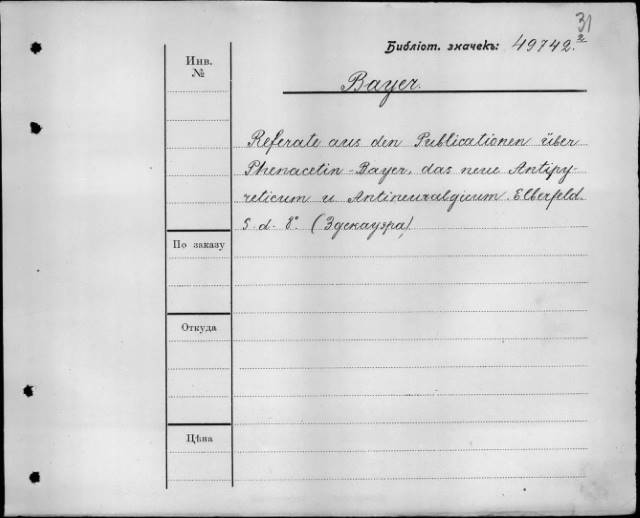 31
Библіот. значекъ: 49742.²
Инв.
№
Bayer.
Referate aus den Publicationen über
Phenacetin-Bayer, das neue Antipy-
reticum u Antineuralgicum. Elberfeld.
s. d. 8° (Здекауэра)
По заказу
Откуда
Цѣна